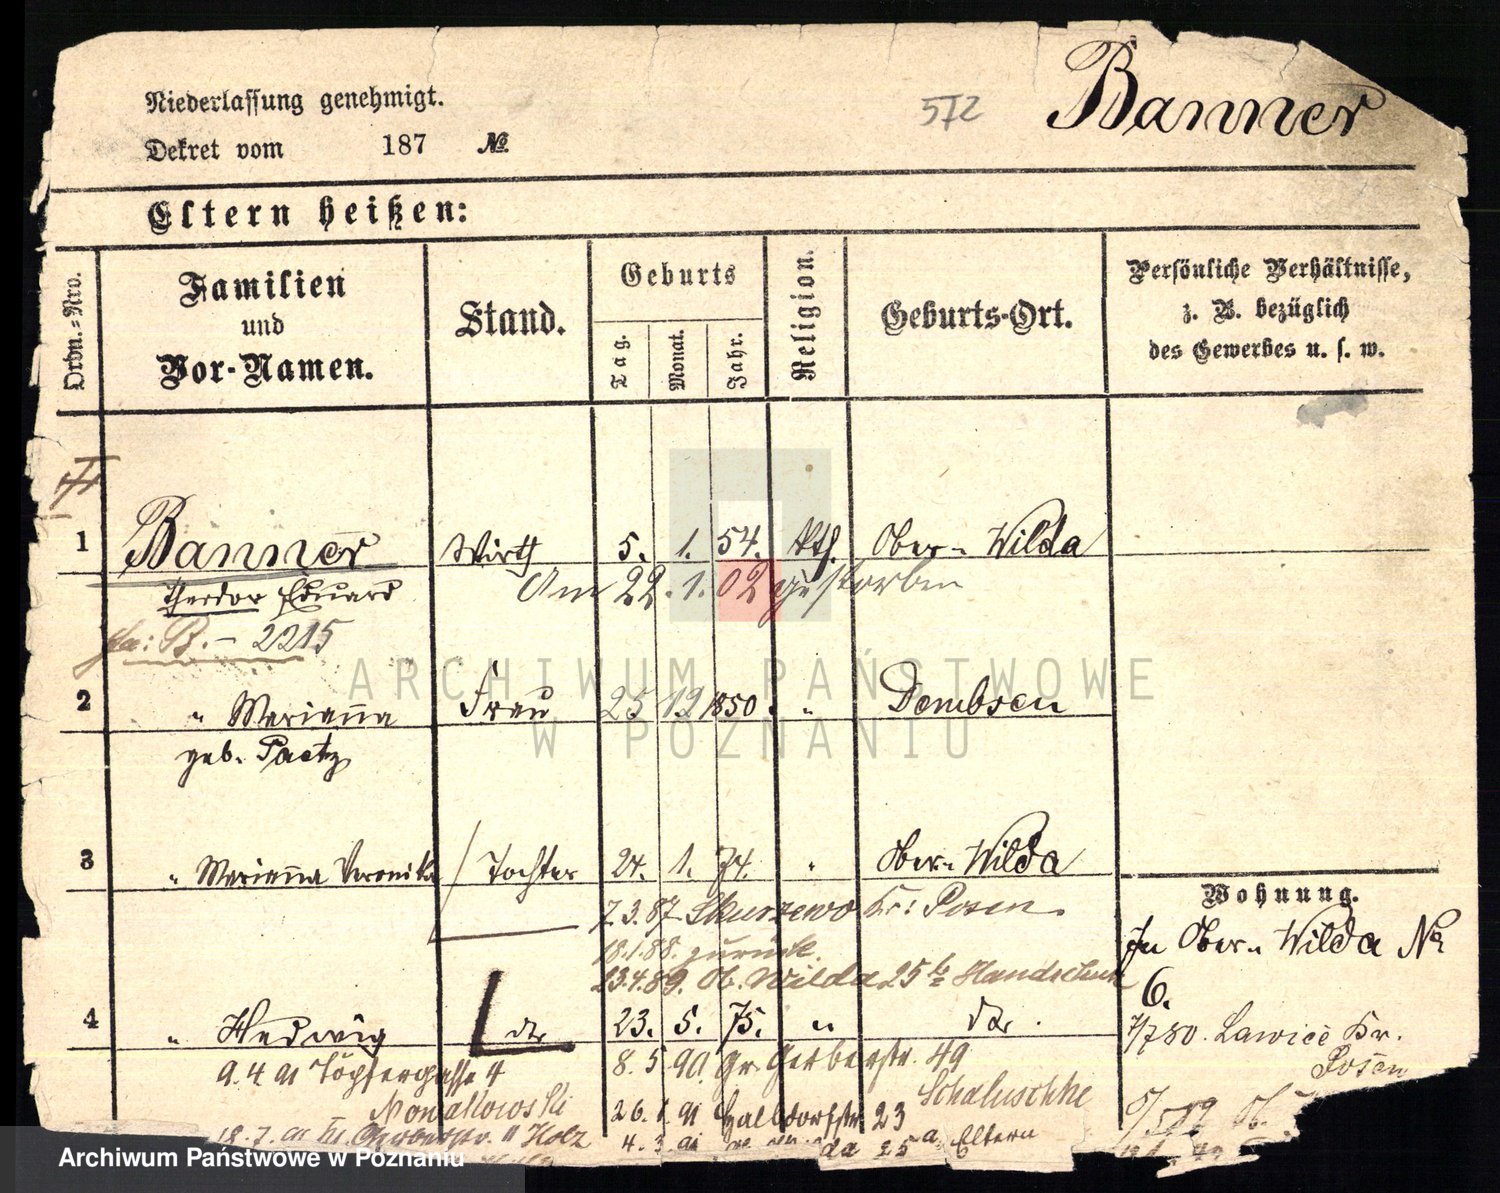 Niederlassung genehmigt.
572
Banner
Dekret vom 187 №
Eltern heißen:
Ordn.-Nro.
Familien
und
Vor-Namen.
Stand.
Geburts
Tag.
Monat.
Jahr.
Religion.
Geburts-Ort.
Persönliche Verhältnisse,
z. B. bezüglich
des Gewerbes u. s. w.
1 Banner Wirth 5. 1. 54. kth. Ober-Wilda
Theodor Eduard
Am 22.1.02 gestorben
B.- 2215
2 " Marianna Frau 25 12 1850. " Dembsen
geb. Paetz
3 " Marianna Veronika Tochter 24. 1. 74. " Ober-Wilda
7.3.87 Skurzewo Kr: Posen.
18.1.88. zurück.
23.4.89. Ob. Wilda 25
4 " Hedwig do 23. 5. 75. " do.
9.4.91 Töpfergasse 4
8.5.90. Gr. Gerberstr. 49
Nowakowski
26. 91 Halbdorfstr. 23 Schaluschke
18.7.91 III. Gerberstr. 11 Holz
4. 3. 91 25a Eltern
Wohnung.
In Ober-Wilda №
6.
7/7 80. Lawice Kr.
Posen
ARCHIWUM PAŃSTWOWE
W POZNANIU
Archiwum Państwowe w Poznaniu